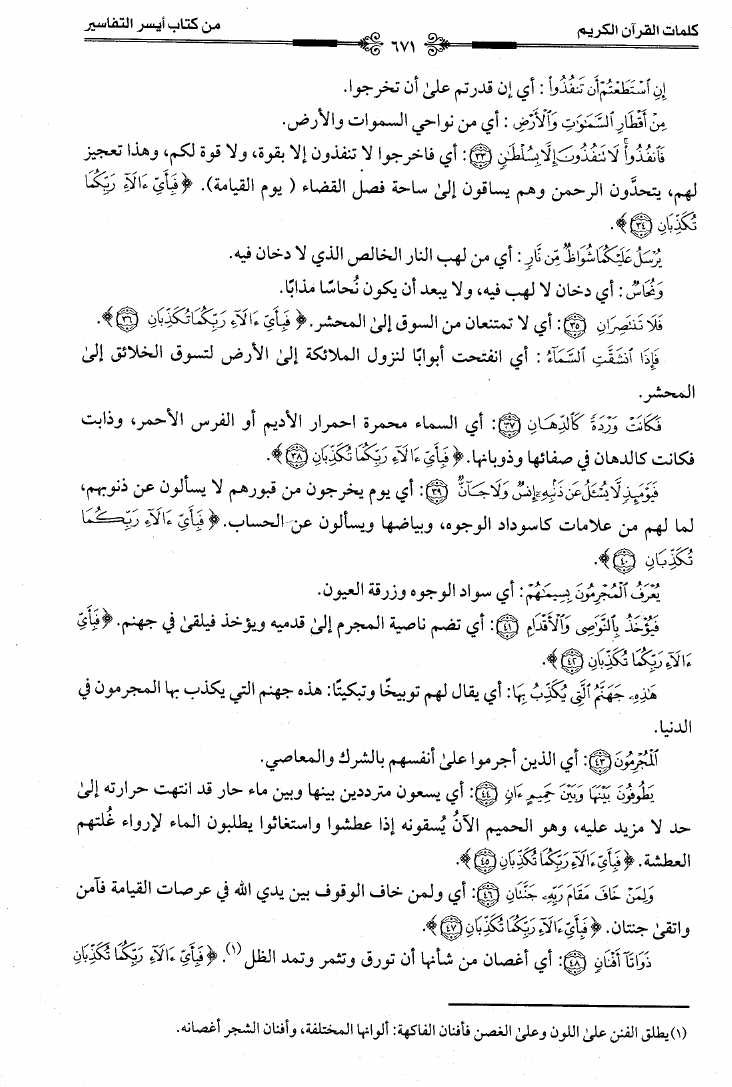 كلمات القرآن الكريم ٦٧١ من كتاب أيسر التفاسير
إِنِ ٱسْتَطَعْتُمْ أَن تَنفُذُوا۟ : أي إن قدرتم على أن تخرجوا.
مِنْ أَقْطَارِ ٱلسَّمَٰوَٰتِ وَٱلْأَرْضِ : أي من نواحي السموات والأرض.
فَٱنفُذُوا۟ ۚ لَا تَنفُذُونَ إِلَّا بِسُلْطَٰنٍ ٣٣ : أي فاخرجوا لا تنفذون إلا بقوة، ولا قوة لكم، وهذا تعجيز
لهم، يتحدَّون الرحمن وهم يساقون إلى ساحة فصل القضاء ( يوم القيامة). ﴿ فَبِأَىِّ ءَالَآءِ رَبِّكُمَا
تُكَذِّبَانِ ٣٤ ﴾.
يُرْسَلُ عَلَيْكُمَا شُوَاظٌ مِّن نَّارٍ : أي من لهب النار الخالص الذي لا دخان فيه.
وَنُحَاسٌ : أي دخان لا لهب فيه، ولا يبعد أن يكون نُحاسًا مذابًا.
فَلَا تَنتَصِرَانِ ٣٥ : أي لا تمتنعان من السوق إلى المحشر. ﴿ فَبِأَىِّ ءَالَآءِ رَبِّكُمَا تُكَذِّبَانِ ٣٦ ﴾.
فَإِذَا ٱنشَقَّتِ ٱلسَّمَآءُ : أي انفتحت أبوابًا لنزول الملائكة إلى الأرض لتسوق الخلائق إلى
المحشر.
فَكَانَتْ وَرْدَةً كَٱلدِّهَانِ ٣٧ : أي السماء محمرة احمرار الأديم أو الفرس الأحمر، وذابت
فكانت كالدهان في صفائها وذوبانها. ﴿ فَبِأَىِّ ءَالَآءِ رَبِّكُمَا تُكَذِّبَانِ ٣٨ ﴾.
فَيَوْمَئِذٍ لَّا يُسْـَٔلُ عَن ذَنۢبِهِۦٓ إِنسٌ وَلَا جَآنٌّ ٣٩ : أي يوم يخرجون من قبورهم لا يسألون عن ذنوبهم،
لما لهم من علامات كاسوداد الوجوه، وبياضها ويسألون عن الحساب. ﴿ فَبِأَىِّ ءَالَآءِ رَبِّكُمَا
تُكَذِّبَانِ ٤٠ ﴾.
يُعْرَفُ ٱلْمُجْرِمُونَ بِسِيمَٰهُمْ : أي سواد الوجوه وزرقة العيون.
فَيُؤْخَذُ بِٱلنَّوَٰصِى وَٱلْأَقْدَامِ ٤١ : أي تضم ناصية المجرم إلى قدميه ويؤخذ فيلقى في جهنم. ﴿ فَبِأَىِّ
ءَالَآءِ رَبِّكُمَا تُكَذِّبَانِ ٤٢ ﴾.
هَٰذِهِۦ جَهَنَّمُ ٱلَّتِى يُكَذِّبُ بِهَا : أي يقال لهم توبيخًا وتبكيتًا: هذه جهنم التي يكذب بها المجرمون في
الدنيا.
ٱلْمُجْرِمُونَ ٤٣ : أي الذين أجرموا على أنفسهم بالشرك والمعاصي.
يَطُوفُونَ بَيْنَهَا وَبَيْنَ حَمِيمٍ ءَانٍ ٤٤ : أي يسعون مترددين بينها وبين ماء حار قد انتهت حرارته إلى
حد لا مزيد عليه، وهو الحميم الآنُ يُسقونه إذا عطشوا واستغاثوا يطلبون الماء لإرواء غُلتهم
العطشة. ﴿ فَبِأَىِّ ءَالَآءِ رَبِّكُمَا تُكَذِّبَانِ ٤٥ ﴾.
وَلِمَنْ خَافَ مَقَامَ رَبِّهِۦ جَنَّتَانِ ٤٦ : أي ولمن خاف الوقوف بين يدي الله في عرصات القيامة فآمن
واتقى جنتان. ﴿ فَبِأَىِّ ءَالَآءِ رَبِّكُمَا تُكَذِّبَانِ ٤٧ ﴾.
ذَوَاتَآ أَفْنَانٍ ٤٨ : أي أغصان من شأنها أن تورق وتثمر وتمد الظل (١). ﴿ فَبِأَىِّ ءَالَآءِ رَبِّكُمَا تُكَذِّبَانِ
(١) يطلق الفنن على اللون وعلى الغصن فأفنان الفاكهة: ألوانها المختلفة، وأفنان الشجر أغصانه.